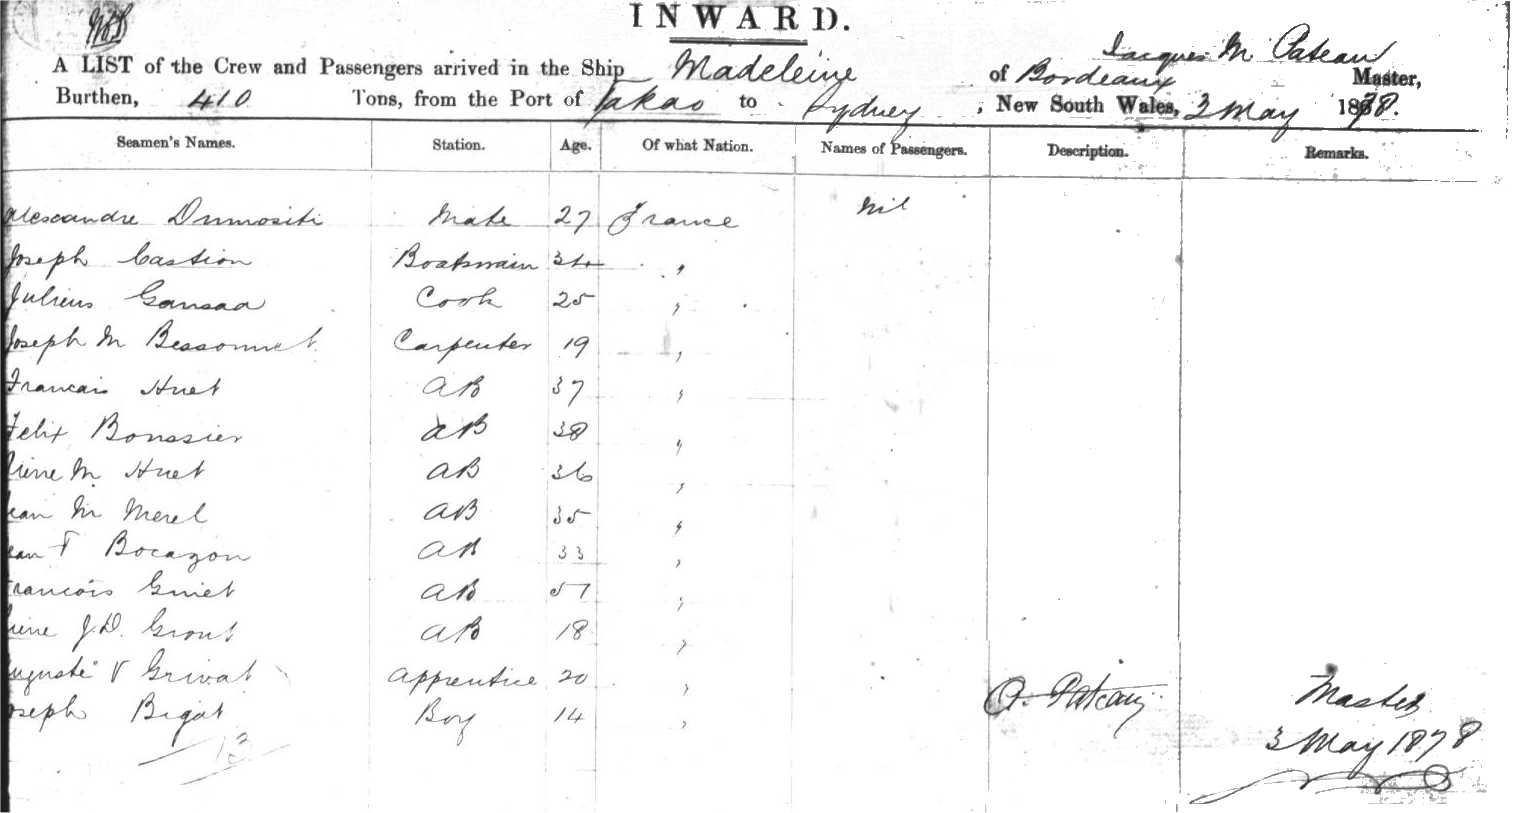 INWARD.
Jacques M Pateau
A LIST of the Crew and Passengers arrived in the Ship Madeleine of Bordeaux Master,
Burthen, 410 Tons, from the Port of Takao to Sydney, New South Wales, 3 May 1878.
Seamen's Names. Station. Age. Of what Nation. Names of Passengers. Description. Remarks.
Alexandre Mate 27 France Nil
Joseph Castion Boatswain 34 "
Juliens Gansaa Cook 25 "
Joseph M Bessonnet Carpenter 19 "
Francais Huet AB 37 "
Felix Bonssier AB 38 "
Pierre M Huet AB 36 "
Jean M Merel AB 35 "
Jean F Bocazon AB 33 "
Francois Guiet AB 51 "
Pierre J.D. Grout AB 18 "
Auguste V Grivat Apprentice 20 "
Joseph Bigot Boy 14 "
13
Pateau Master
3 May 1878